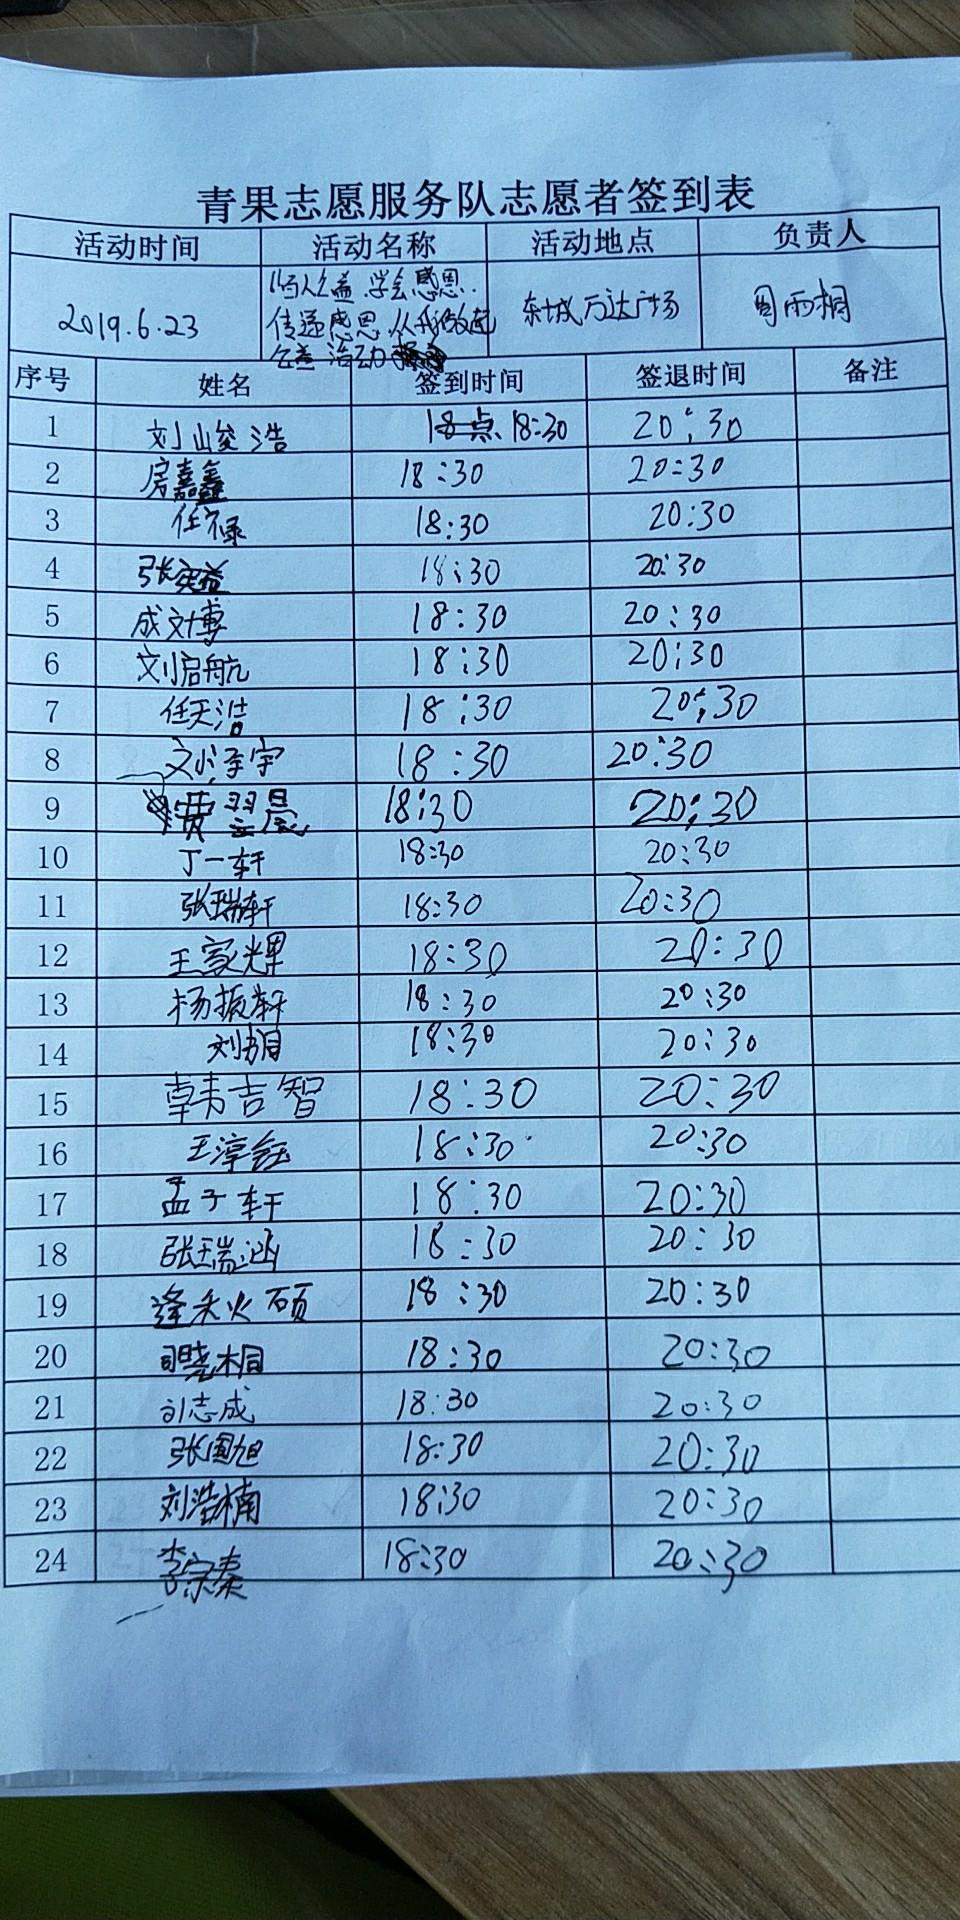 青果志愿服务队志愿者签到表
活动时间 活动名称 活动地点 负责人
2019.6.23 公益 学会感恩. 传递感恩 从我做起 公益活动 东城万达广场 周雨桐
序号 姓名 签到时间 签退时间 备注
1 刘峻浩 18点 18:30 20:30
2 房嘉鑫 18:30 20:30
3 任禄 18:30 20:30
4 张奕益 18:30 20:30
5 成文博 18:30 20:30
6 刘启航 18:30 20:30
7 任天浩 18:30 20:30
8 刘宇 18:30 20:30
9 贾翌晨 18:30 20:30
10 丁一轩 18:30 20:30
11 张瑞轩 18:30 20:30
12 王家辉 18:30 20:30
13 杨振轩 18:30 20:30
14 刘 18:30 20:30
15 韩吉智 18:30 20:30
16 王淳钰 18:30 20:30
17 孟子轩 18:30 20:30
18 张瑞涵 18:30 20:30
19 逄禾火硕 18:30 20:30
20 司晓桐 18:30 20:30
21 刘志成 18:30 20:30
22 张国旭 18:30 20:30
23 刘浩楠 18:30 20:30
24 李宗秦 18:30 20:30